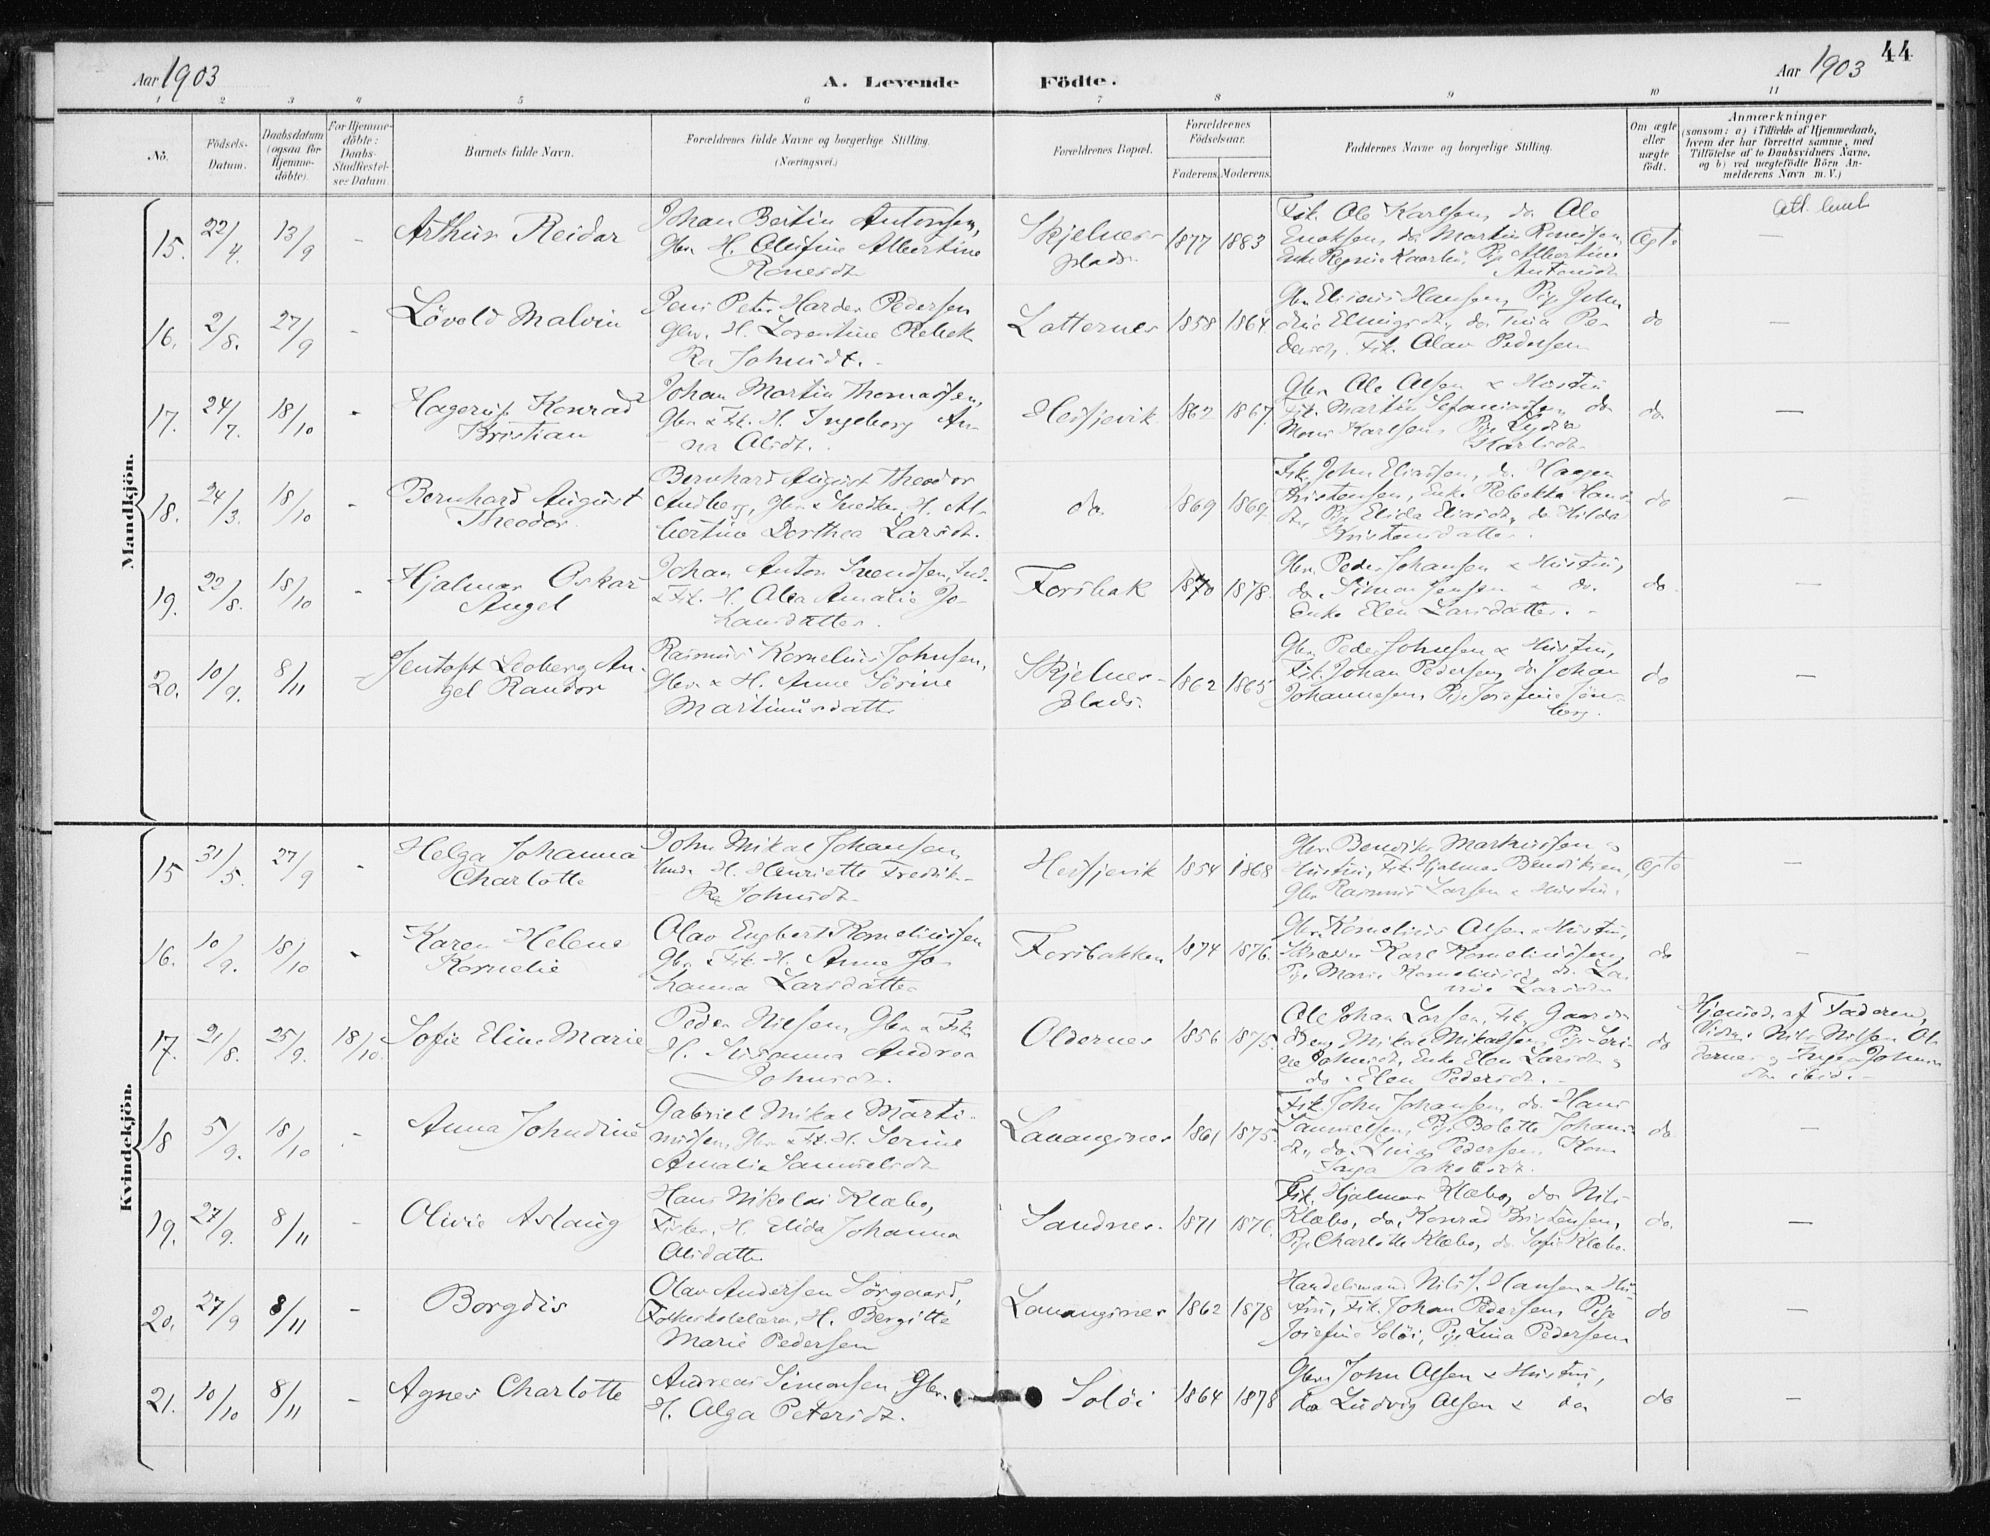 Aar 1903
A. Levende Födte.
Aar 1903
44
1 2 3 4 5 6 7 8 9 10 11
No.
Födsels-Datum.
Daabsdatum (ogsaa for Hjemme-döbte).
For Hjemme-döbte: Daabs-Stadfæstel-ses Datum.
Barnets fulde Navn.
Forældrenes fulde Navne og borgerlige Stilling. (Næringsvei.)
Forældrenes Bopæl.
Forældrenes Födselsaar.
Faderens. Moderens.
Faddernes Navne og borgerlige Stilling.
Om ægte eller uægte födt.
Anmærkninger
(saasom: a) i Tilfælde af Hjemmedaab, hvem der har forrettet samme, med Tilföielse af to Daabsvidners Navne, og b) ved uægtefödte Börn An-melderens Navn m. V.)
Mandkjön.
15. 22/4. 13/9 - Arthur Reidar
Johan Bertin Antonsen,
Gbr. H. Olufine Albertine
Skjelnes-
plads.
1877 1883
Fisk. Ole Karlsen, do Ole
Ægte —
16. 2/8. 27/9 - Lövold Malvin
Jens Peter Harder Pedersen
Gbr. H. Lorentine Rebek-
ka Johnsdt. -
Latternes 1858 1864
dersdt, Fisk. Olav Pedersen
do —
17. 24/7. 18/10 - Hagerup Konrad
Kristian
Johan Martin Thomassen,
Gbr & Fisk. H. Ingeborg An-
na Olsdt.
Hessjevik 1862 1867.
Gbr. Ole Olsen & Hustru
Mons Karlsen, Pige Lydia
Karlsdt.
do —
18. 24/3. 18/10 - Bernhard August
Theodor.
Bernhard August Theodor
Andberg, Gbr & Snedker, H. Al-
bertine Dorthea Larsdt.
do. 1869 1869.
Fisk. John Eliassen, do. Haagen
Kristensen, Enke Rebekka Hans-
dt, Pige Elida Eliasdt, do Hilda
Kristensdatter.
do —
19. 22/8. 18/10 - Hjalmar Oskar
Angel
Johan Anton Svendsen, Ind.
& Fisk. H. Olea Amalie Jo-
hansdatter.
Forsbak 1870 1878.
Gbr. Peder Johansen & Hustru,
do. Simon Jensen & do.
Enke Elen Larsdatter. -
do —
20. 10/9. 8/11 - Jentoft Leoberg An-
gel Randor
Rasmus Kornelius Johnsen,
Gbr. & H. Anne Sörine
Martinusdatter
Skjelnes-
plads.
1862 1865
Gbr. Peder Johnsen & Hustru,
Fisk. Johan Pedersen, do Johan
Johannesen, Pige Josefine Jön-
berg.
do —
Kvindekjön.
15 31/5. 27/9 - Helga Johanna
Charlotte
John Mikal Johansen,
H. Henriette Fredrik-
ke Johnsdt.
Hessjevik 1854 1868
Hustru, Fisk. Hjalmar Bendiksen,
Gbr. Rasmus Larsen & Hustru.
Ægte —
16. 10/9. 18/10 - Karen Helene
Kornelie
Olav Engbert Korneliussen
Gbr. & Fisk. H. Anne Jo-
hanna Larsdatter
Forsbakken 1874 1876.
Gbr. Kornelius Olsen & Hustru,
Skrædder Karl Korneliussen,
do —
17. 21/8. 25/9. 18/10. Sofie Eline Marie
Peder Nilsen, Gbr & Fisk
H. Susanna Andrea
Johnsdt.
Oldernes 1856 1875.
do. Elen Pedersdt. -
do
Hjemmed. af Faderen,
18 5/9. 18/10 - Anna Johndine
Gabriel Mikal Marti-
nussen, Gbr & Fisk. H. Serine
Amalie Samuelsdt
Lavangsnes 1861 1875.
Fisk. John Johansen, do. Hans
Samuelsen, Pige Bolette Johans-
dt, do. Lina Pedersen, Kone
do —
19. 27/9. 8/11 - Olivie Aslaug
Hans Nikolai Klæbo,
Fisker, H. Elida Johanna
Olsdatter
Sandnes. 1871 1876.
Fisk. Hjalmar Klæbo, do Nils
Klæbo, do, Konrad Kristensen,
Pige Charlotte Klæbo, do Sofie Klæbo.
do. —
20. 27/9 8/11 - Borgdis
Olav Andersen Sörgaard,
Folkeskolelærer, H. Bergitte
Marie Pedersen
Lavangsnes 1862 1878
Handelsmand Nils J. Hansen & Hu-
stru, Fisk. Johan Pedersen, Pige
Josefine Solöi, Pige Lina Pedersen
do —
21. 10/10 8/11 - Agnes Charlotte
Andreas Simonsen, Gbr.
H. Olga Petersdt.
Solöi 1864 1878
Gbr. John Olsen & Hustru,
do Ludvig Olsen & do
do —